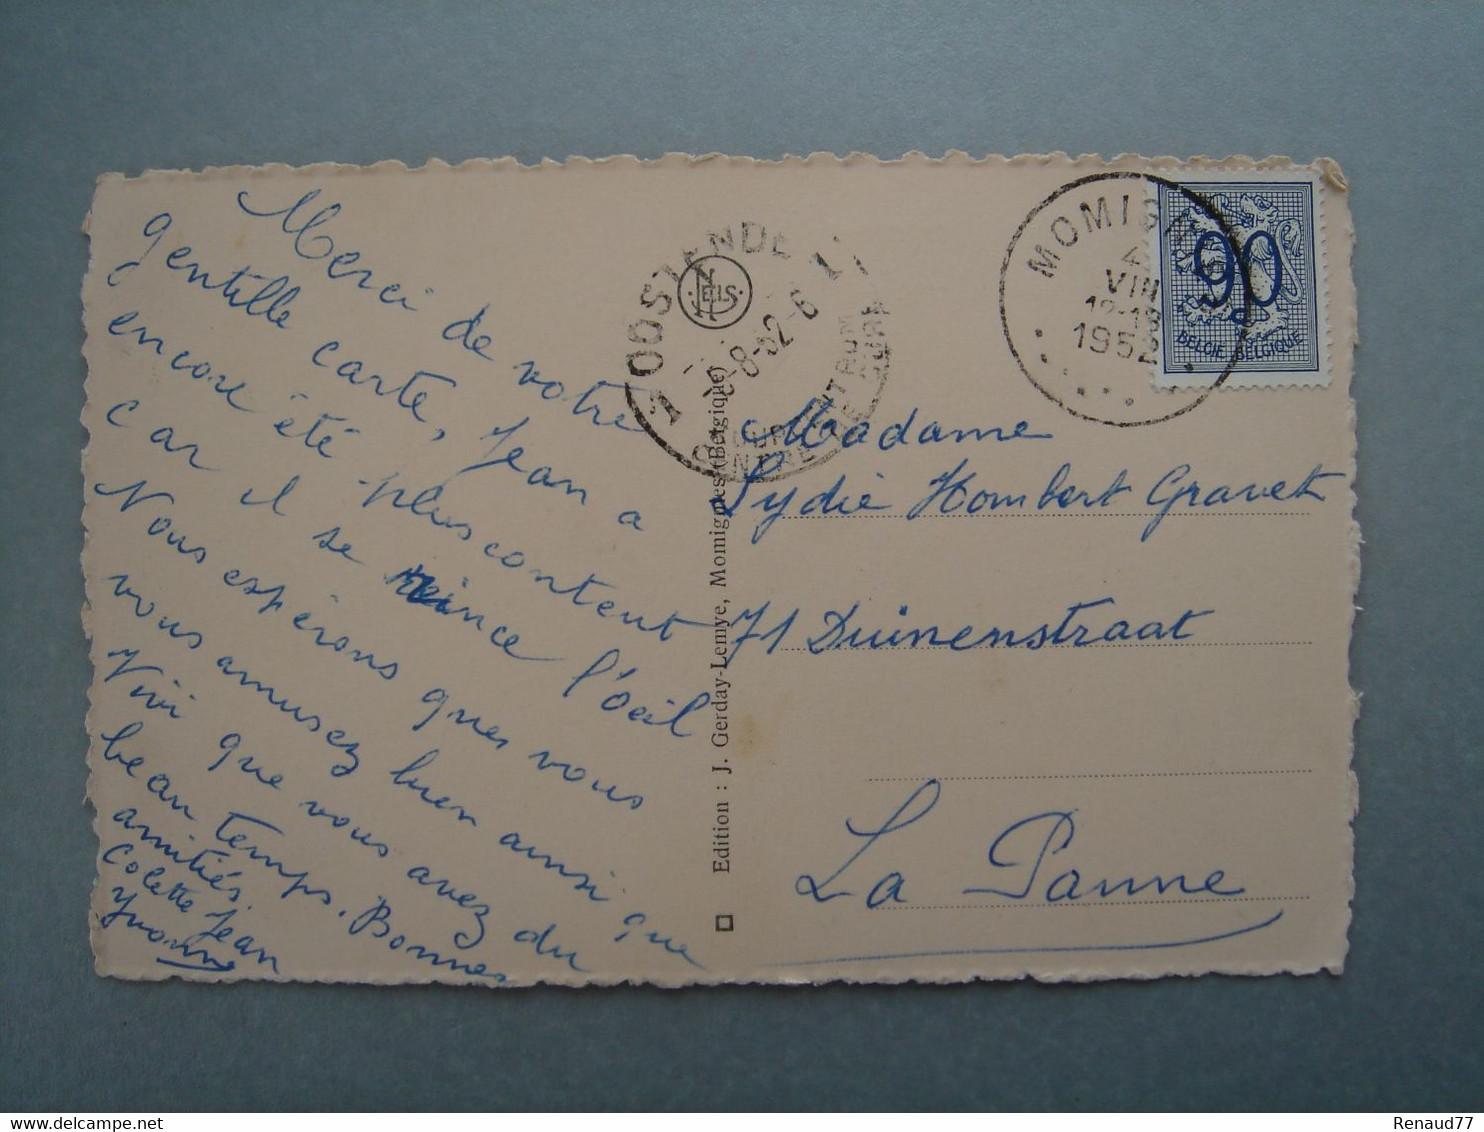 Merci de votre
gentille carte, Jean a
encore été plus content
car il se rince l'oeil
Nous espérons que vous
vous amusez bien ainsi que
Vivi que vous avez du
beau temps. Bonnes
amitiés.
Colette Jean
Yvonne
Edition : J. Gerday-Lemye, Momignies (Belgique)
NELS
OOSTENDE 1
5-8-52-6
MOMIGNIES
4
VIII
12-18
1952
90
BELGIE-BELGIQUE
Madame
Lydie Hombert Gravet
71 Duinenstraat
La Panne
Renaud77